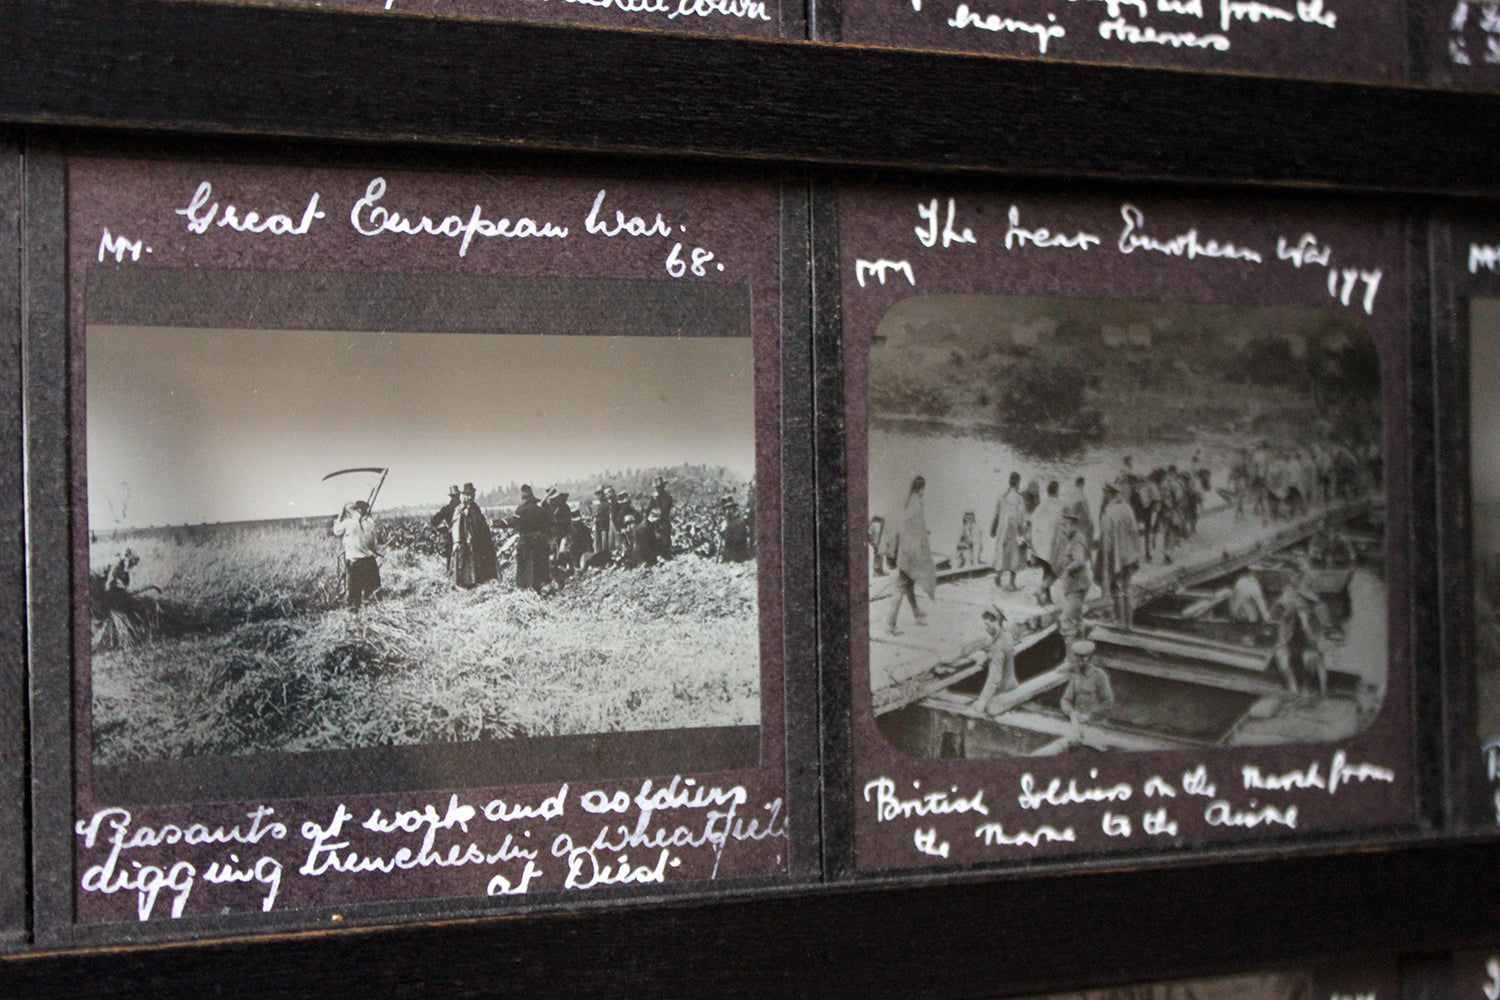 from the
enemy's observers
Great European War.
MM.
68.
Peasants at work and soldiers
digging trenches in a wheatfield
at Diest
The Great European War
MM
177
British Soldiers on the march from
the Marne to the Aisne